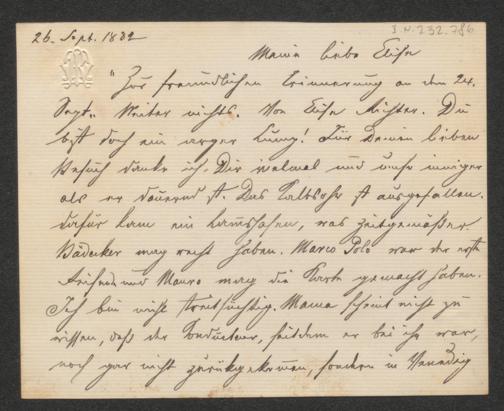 I.N. 232.786
26. Sept. 1882
Meine liebe Elise
"Zur freundlichen Erinnerung an den 24.
Sept." Weiter nichts. Von Elise Richter. Du
bist doch ein arger Lump! Für Deinen lieben
Besuch danke ich Dir vielmal und umso inniger
als er dauernd ist. Das Kalbsohr ist ausgefallen.
dafür kam ein was zeitgemäßer.
Bädecker mag recht haben. Marco Polo war der erste
Reisende und Mauro mag die Karte gemacht haben.
Ich bin nicht streitsüchtig. Mama scheint nicht zu
wissen, daß der Kondukteur, seitdem er bei ihr war,
noch gar nicht zurückgekommen, sondern in Venedig